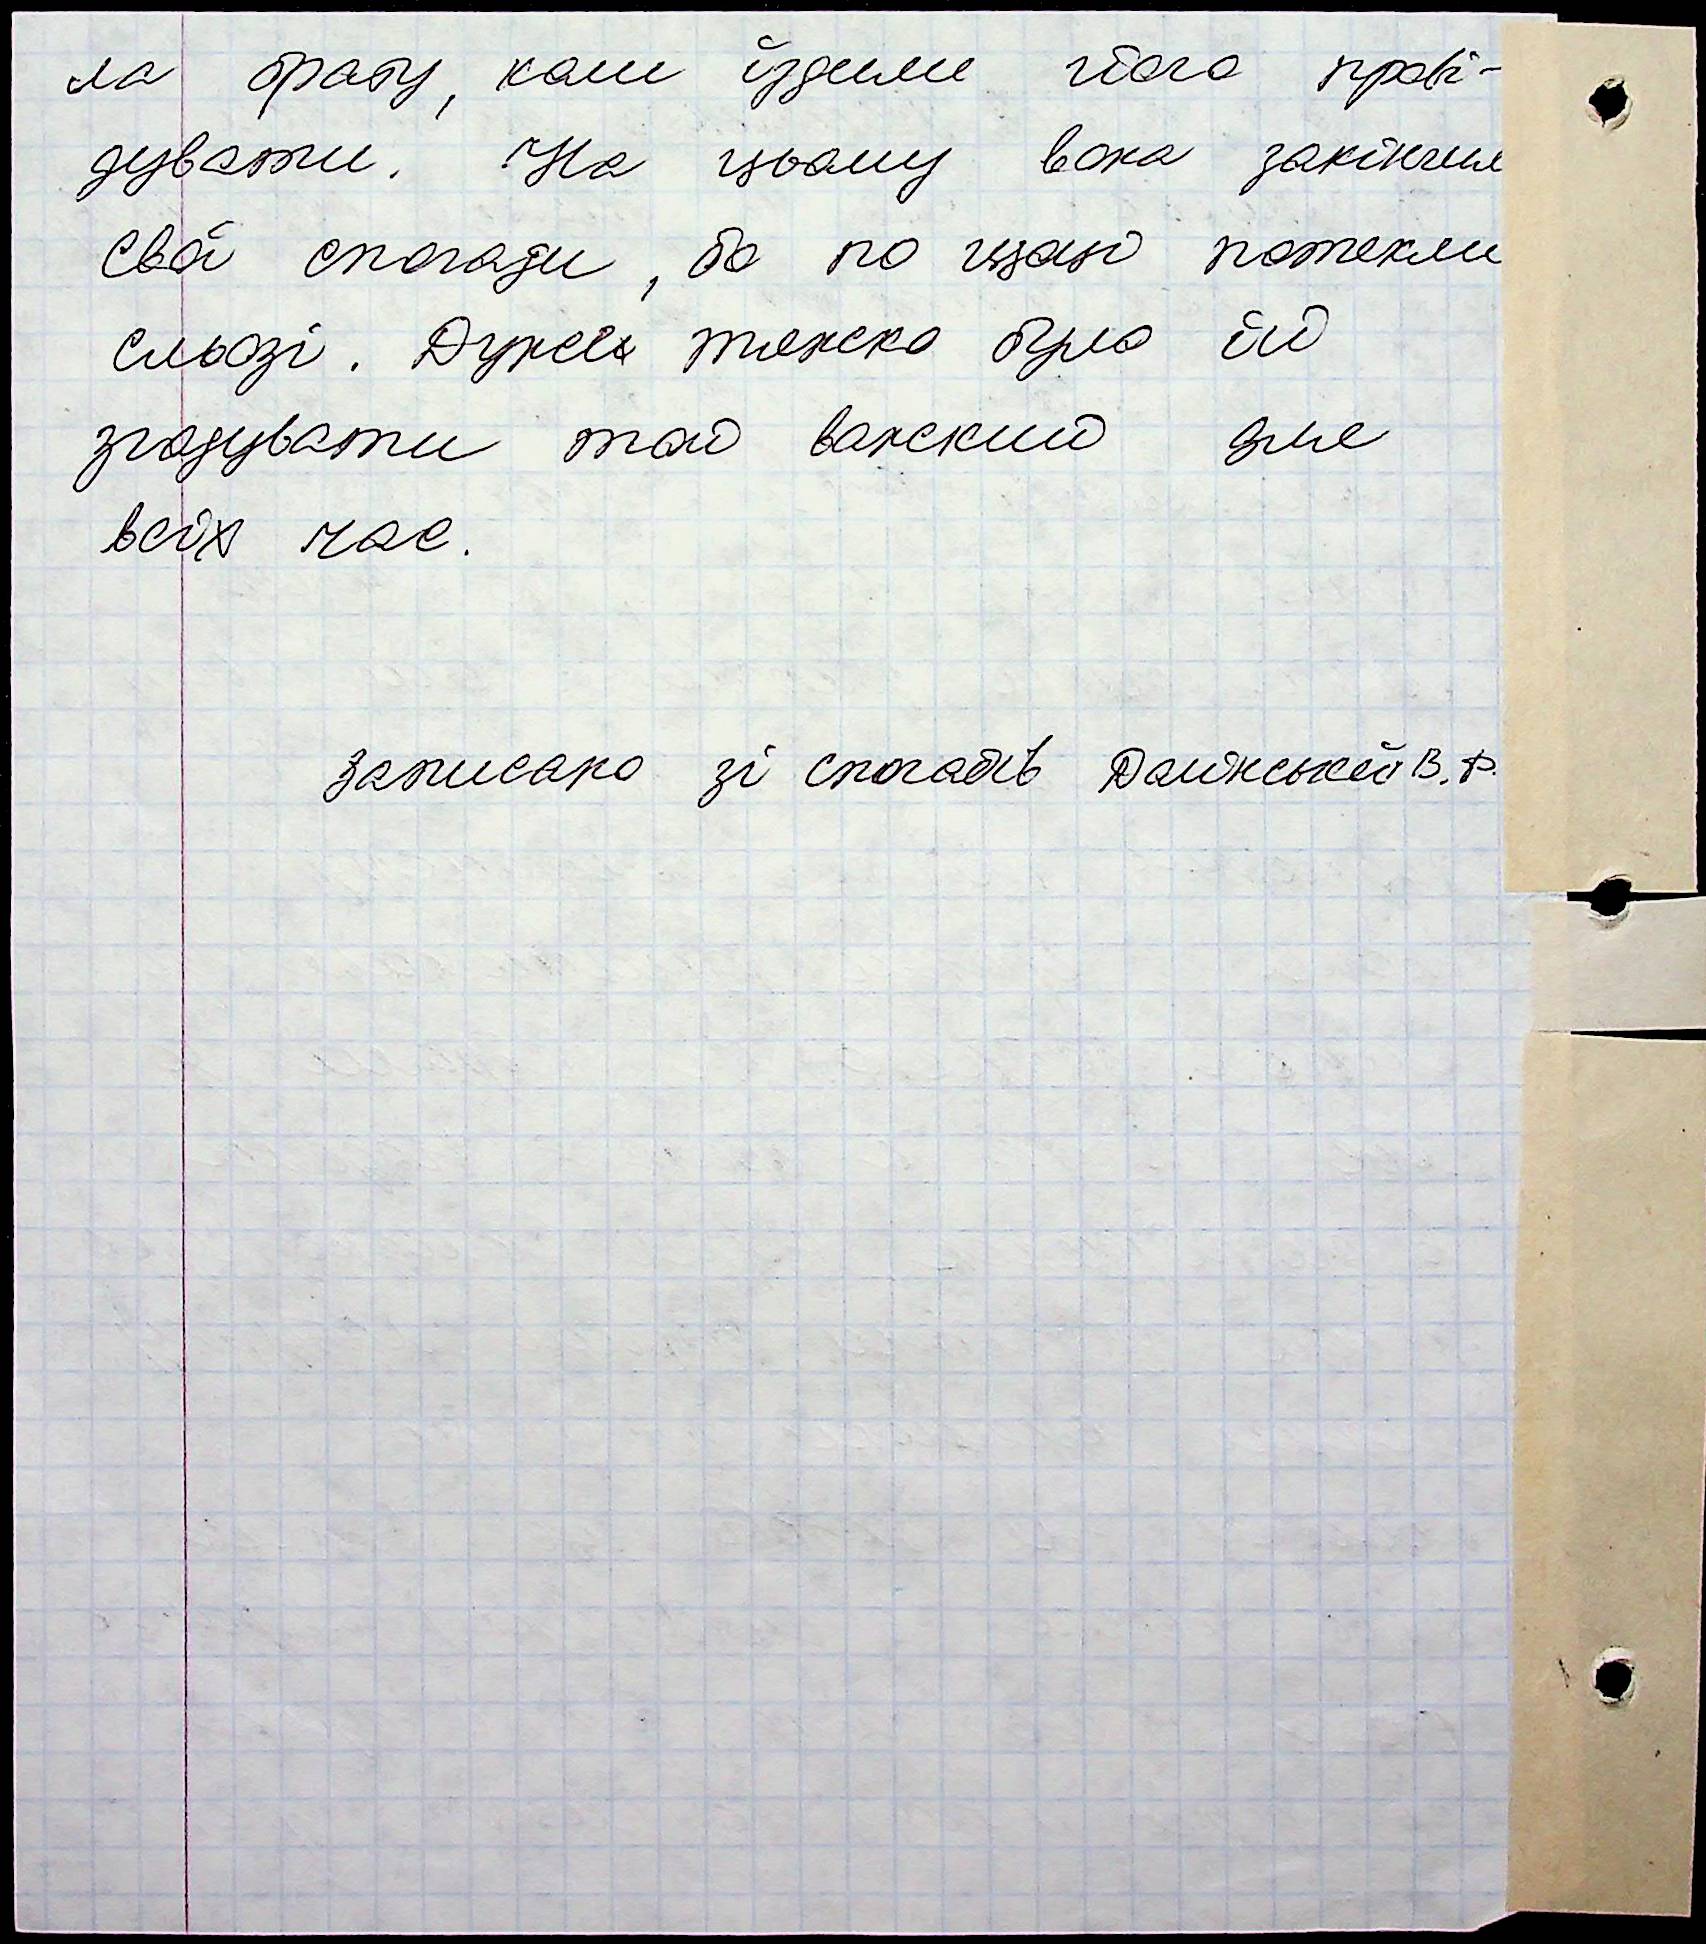 ла брату, коли їздили його прові-
дувати. На цьому вона закінчил
свої спогади, бо по щокі потекли
сльозі. Дуже тяжко було їй
згадувати той важкий для
всіх час.
Записано зі спогадів Долінської В. Ф.